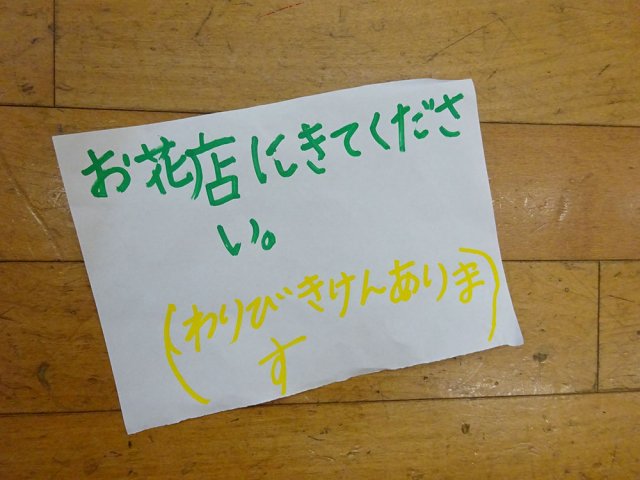 お花店にきてくださ
い。
(わりびきけんありま
す)